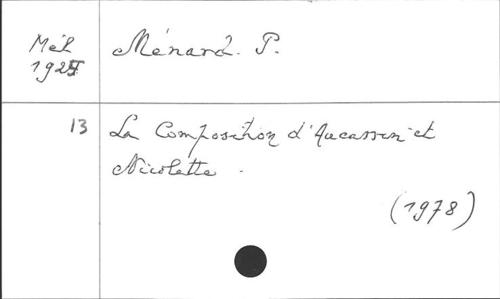 Mél
Ménard. P.
13
La Composition d'Aucassin et
Nicolette.
(1978)